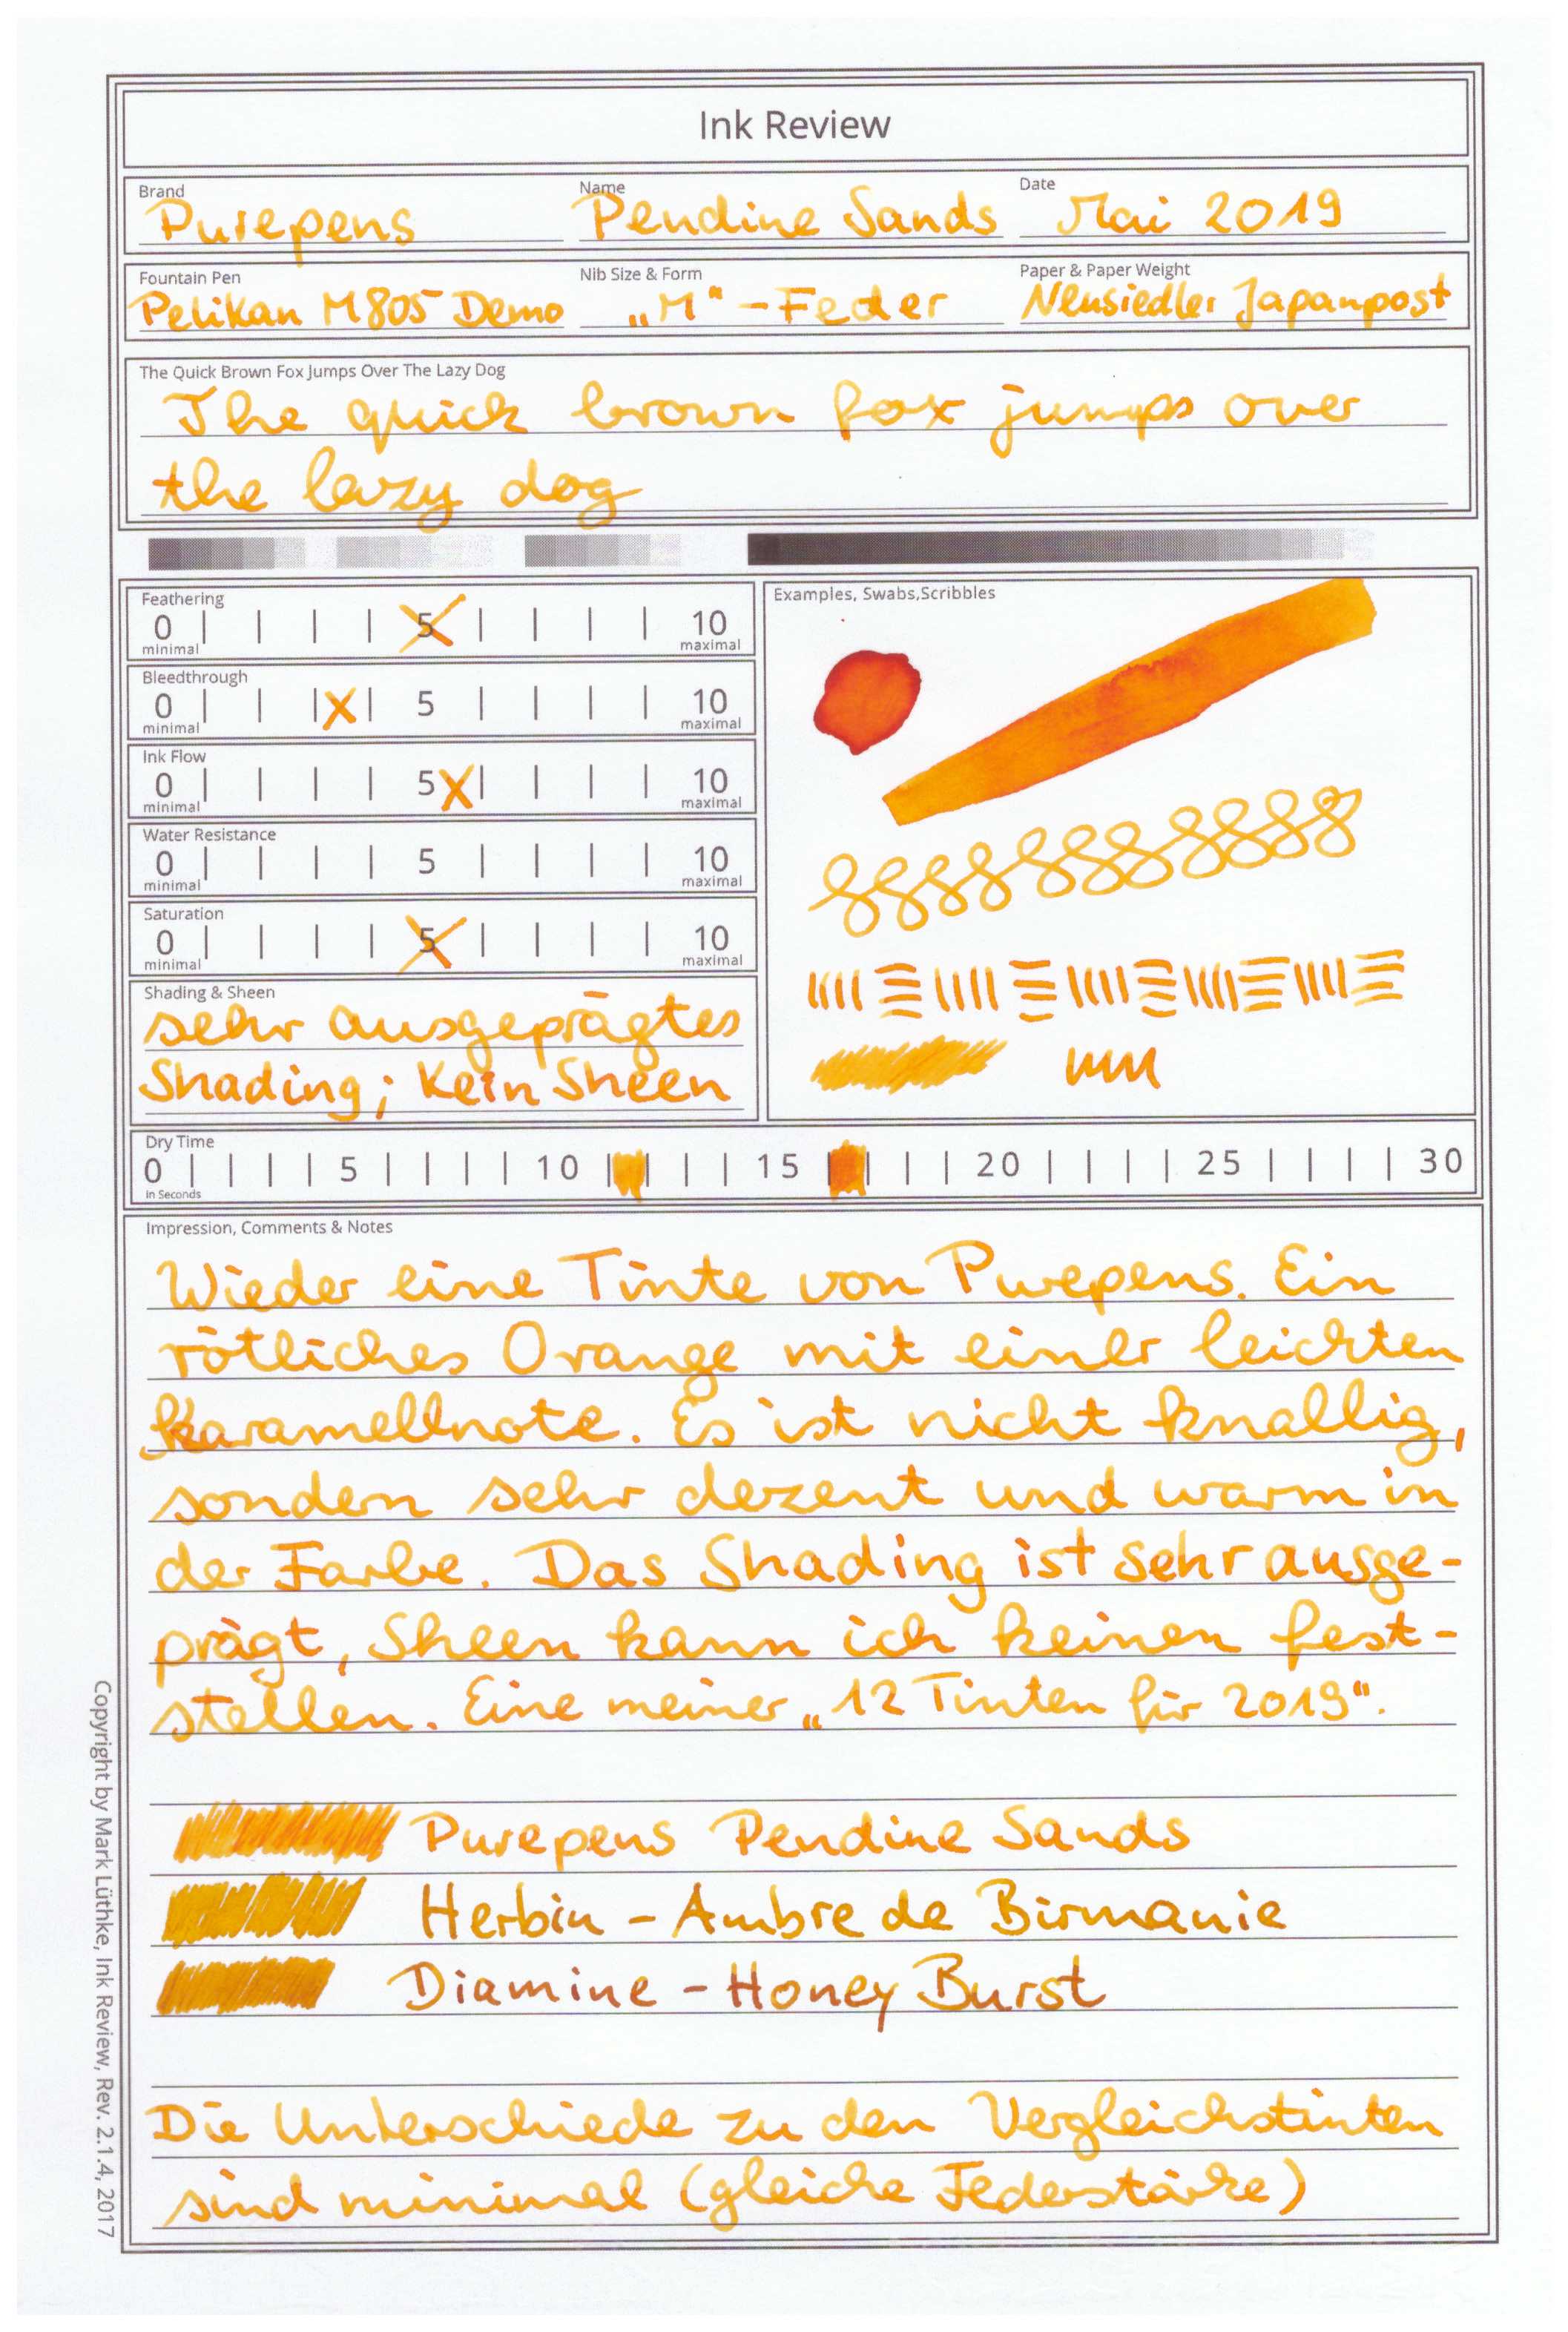 Ink Review
Brand Name Date
Purepens Pendine Sands Mai 2019
Fountain Pen Nib Size & Form Paper & Paper Weight
Pelikan M805 Demo „M“-Feder Neusiedler Japanpost
The Quick Brown Fox Jumps Over The Lazy Dog
The quick brown fox jumps over
the lazy dog
Feathering
0 | | | | 5 | | | | 10
minimal maximal
Bleedthrough
0 | | | X | 5 | | | | 10
minimal maximal
Ink Flow
0 | | | | 5 X | | | | 10
minimal maximal
Water Resistance
0 | | | | 5 | | | | 10
minimal maximal
Saturation
0 | | | | 5 | | | | 10
minimal maximal
Shading & Sheen
sehr ausgeprägtes
Shading; Kein Sheen
Examples, Swabs,Scribbles
Dry Time
0 | | | | 5 | | | | 10 | | | | 15 | | | | 20 | | | | 25 | | | | 30
in Seconds
Impression, Comments & Notes
Wieder eine Tinte von Purepens. Ein
rötliches Orange mit einer leichten
Karamellnote. Es ist nicht knallig,
sondern sehr dezent und warm in
der Farbe. Das Shading ist sehr ausge-
prägt, Sheen kann ich keinen fest-
stellen. Eine meiner „12 Tinten für 2019“.
Purepens Pendine Sands
Herbin - Ambre de Birmanie
Diamine - Honey Burst
Die Unterschiede zu den Vergleichstinten
sind minimal (gleiche Federstärke)
Copyright by Mark Lüthke, Ink Review, Rev. 2.1.4, 2017